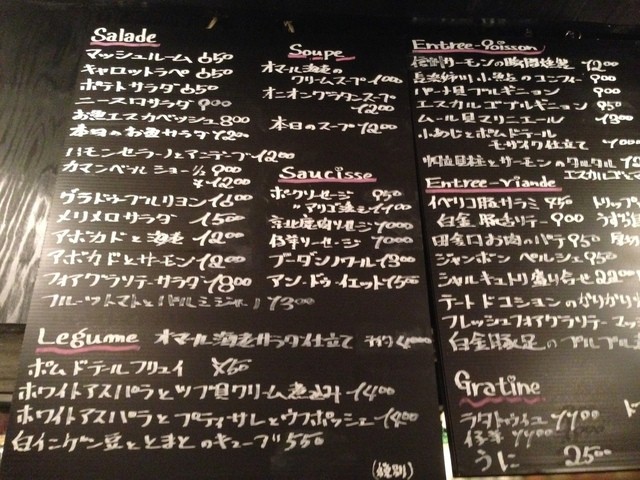 Salade
マッシュルーム 650
キャロットラペ 650
ポテトサラダ 650
ニース風サラダ 900
お魚エスカベッシュ 800
本日のお魚サラダ 1200
ハモンセラーノとアンディーブ 1200
カマンベール ショー 1/2 900
¥1200
グラドゥーブルリヨン 1600
メリメロサラダ 1500
アボカドと海老 1200
アボカドとサーモン 1200
フォアグラソテーサラダ 1800
フルーツトマトと 1300
Legume オマール海老サラダ仕立て 4000
ポムドテールフリュイ ¥650
ホワイトアスパラとツブ貝クリーム煮込み 1400
ホワイトアスパラとプティサレとウフポッシェ 1800
白インゲン豆ととまとのキューブ 550
(税別)
Soupe
オマール海老の
クリームスープ 1000
オニオングラタンスープ
1200
本日のスープ 1200
Saucisse
ポークソーセージ 950
1100
仔羊ソーセージ 1000
ブーダンノワール 1300
アンドゥイエット 1500
Entree-Poisson
サーモンの瞬間燻製 1200
小鮎のコンフィー 900
バーナ貝ブルギニョン 900
エスカルゴブルギニョン 950
ムール貝マリニエール 1800
小あじとポムドテール
モザイク仕立て 1000
帆立貝柱とサーモンのタルタル
エスカルゴとマ
Entree-Viande
イベリコ豚サラミ 850 トリップ
白金豚ロリテー 900 うずら
田舎風お肉のパテ 950
ジャンボン ペルシエ 950
シャルキュトリ盛り合せ 2200
テートドコションのかりかり
フレッシュフォアグラソテー マッ
白金豚足のプルプル
Gratine
ラタトゥイユ 1100
仔羊 1400
うに 2500